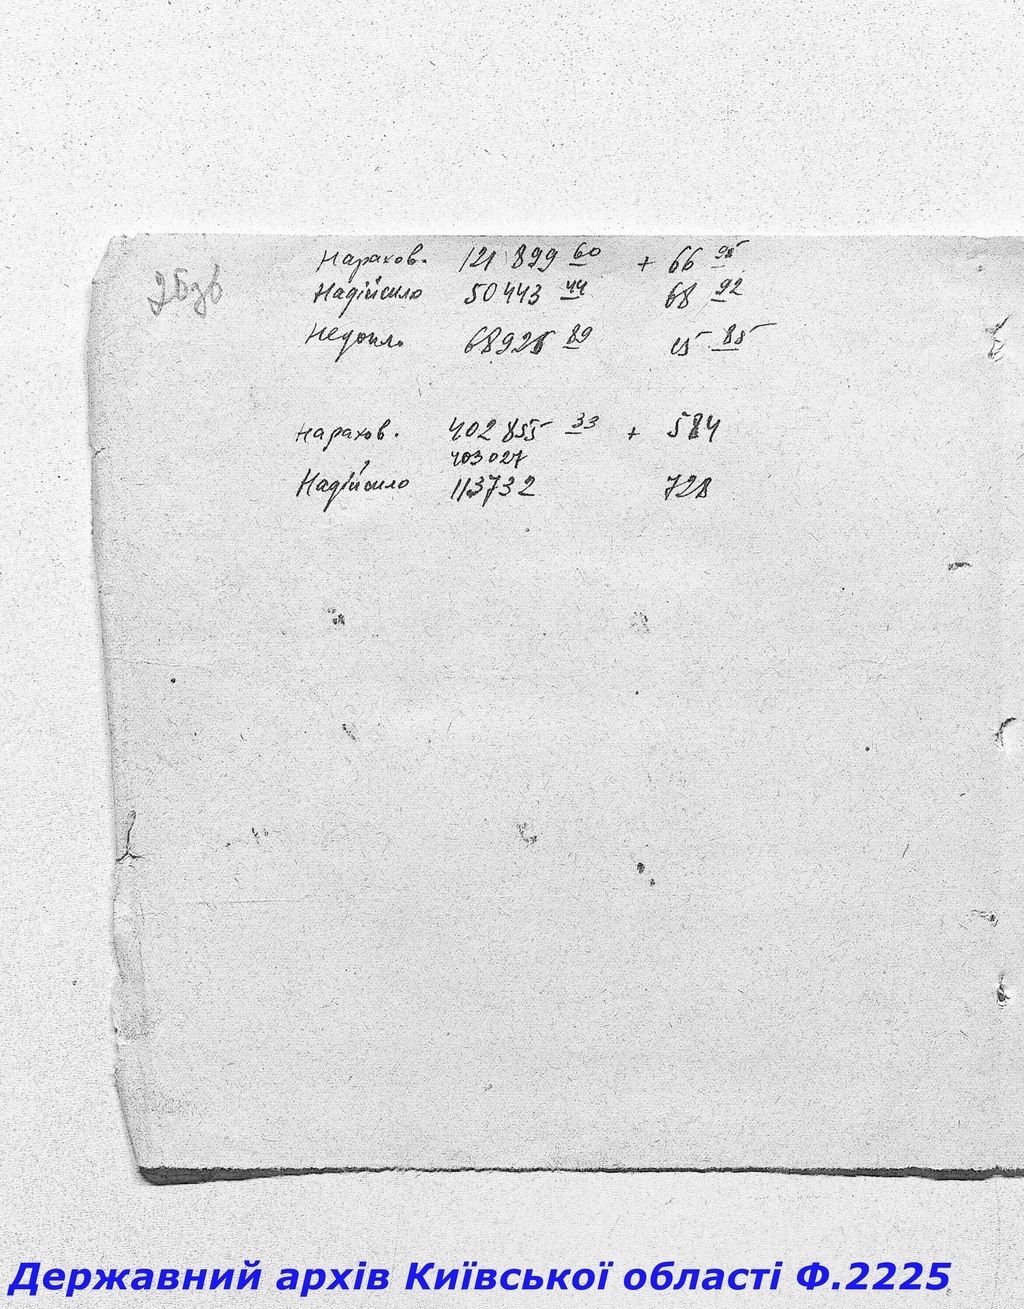 26зв
Нарахов. 121 899 60 + 66 95
Надійшло 50 443 44 68 92
Недоїм. 89 85
Нарахов. 402 855 33 + 584
403 027
Надійшло 113732 728
Державний архів Київської області Ф.2225